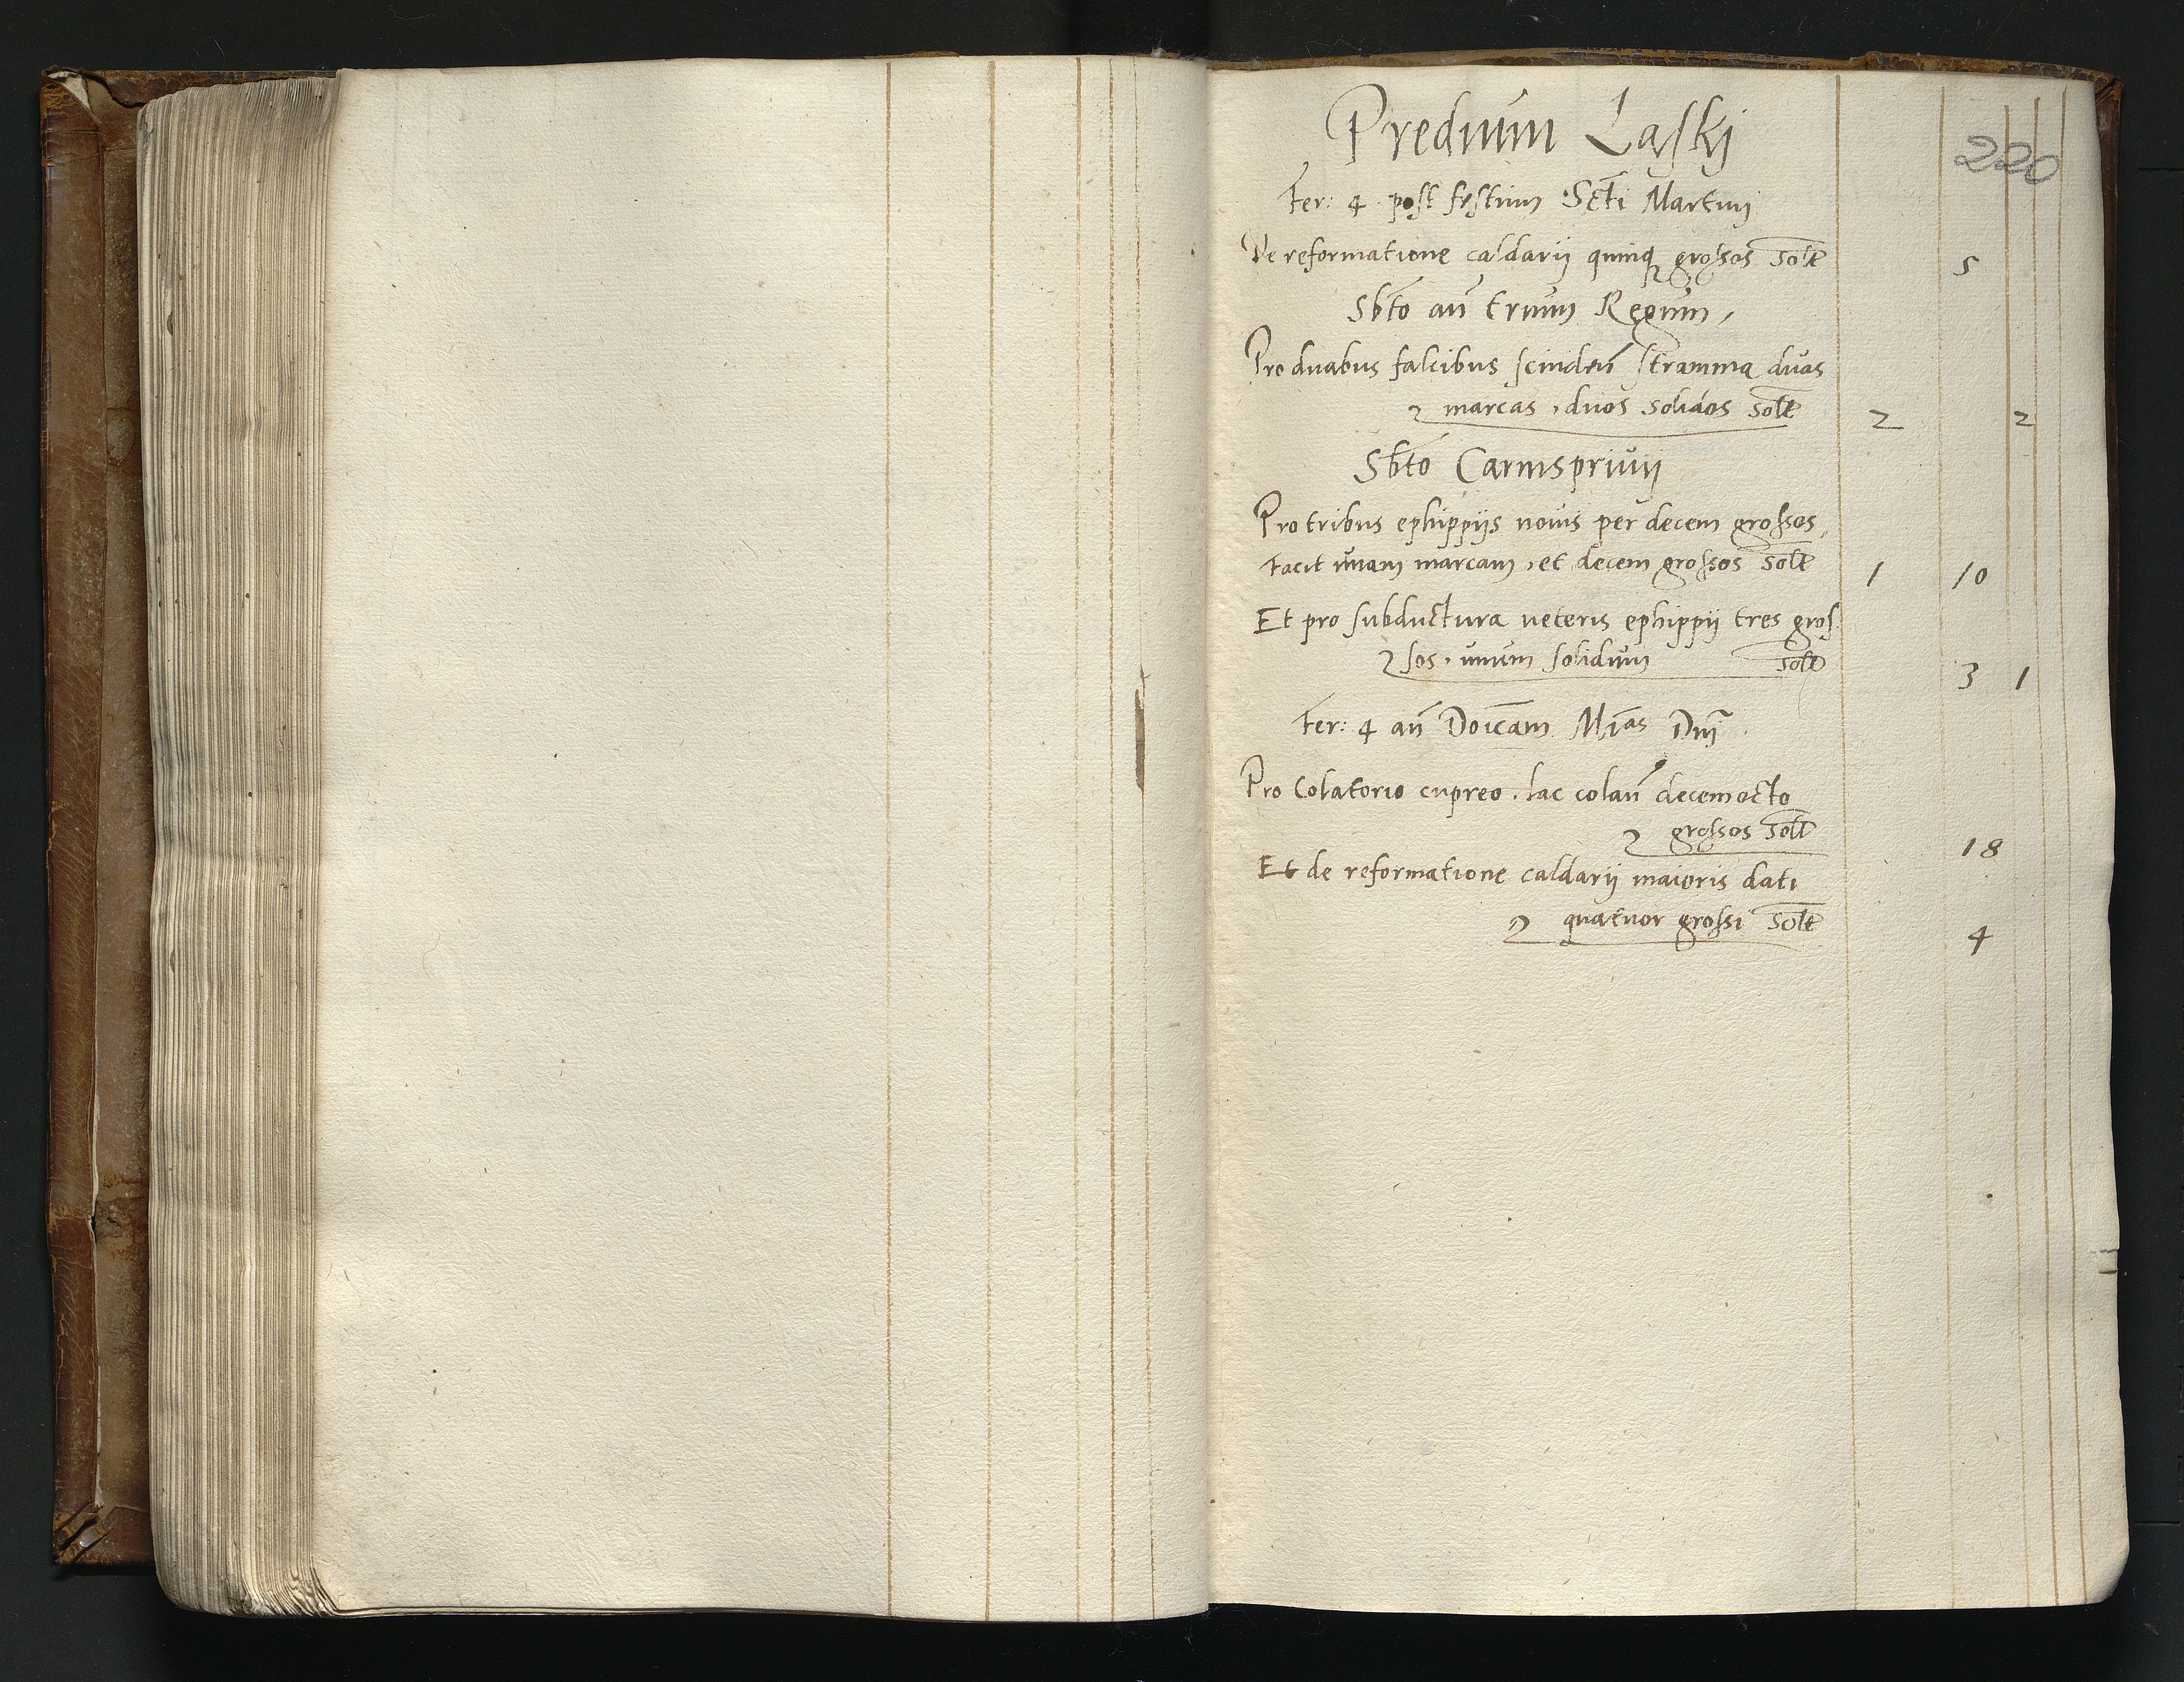 Predium Laskj
220
Fer: 4 post festum Scti Martinj
De reformatione caldarij quinq grossos solt 5
Sbto añ trium Regum,
Pro duabus falcibus scindeñ stramina duas
marcas, duos solidos solt 2 2
Sbto Carnispriuij
Pro tribus ephippijs nouis per decem grossos,
Facit unam marcam, et decem grossos solt 1 10
Et pro subductura ueteris ephippij tres gros
sos, unum solidum solt 3 1
Fer: 4 añ Doicam Mias Dnj
Pro Colatorio cupreo, lac colañ decemocto
grossos solt 18
Et de reformatione caldarij maioris dati
quatuor grossi solt 4